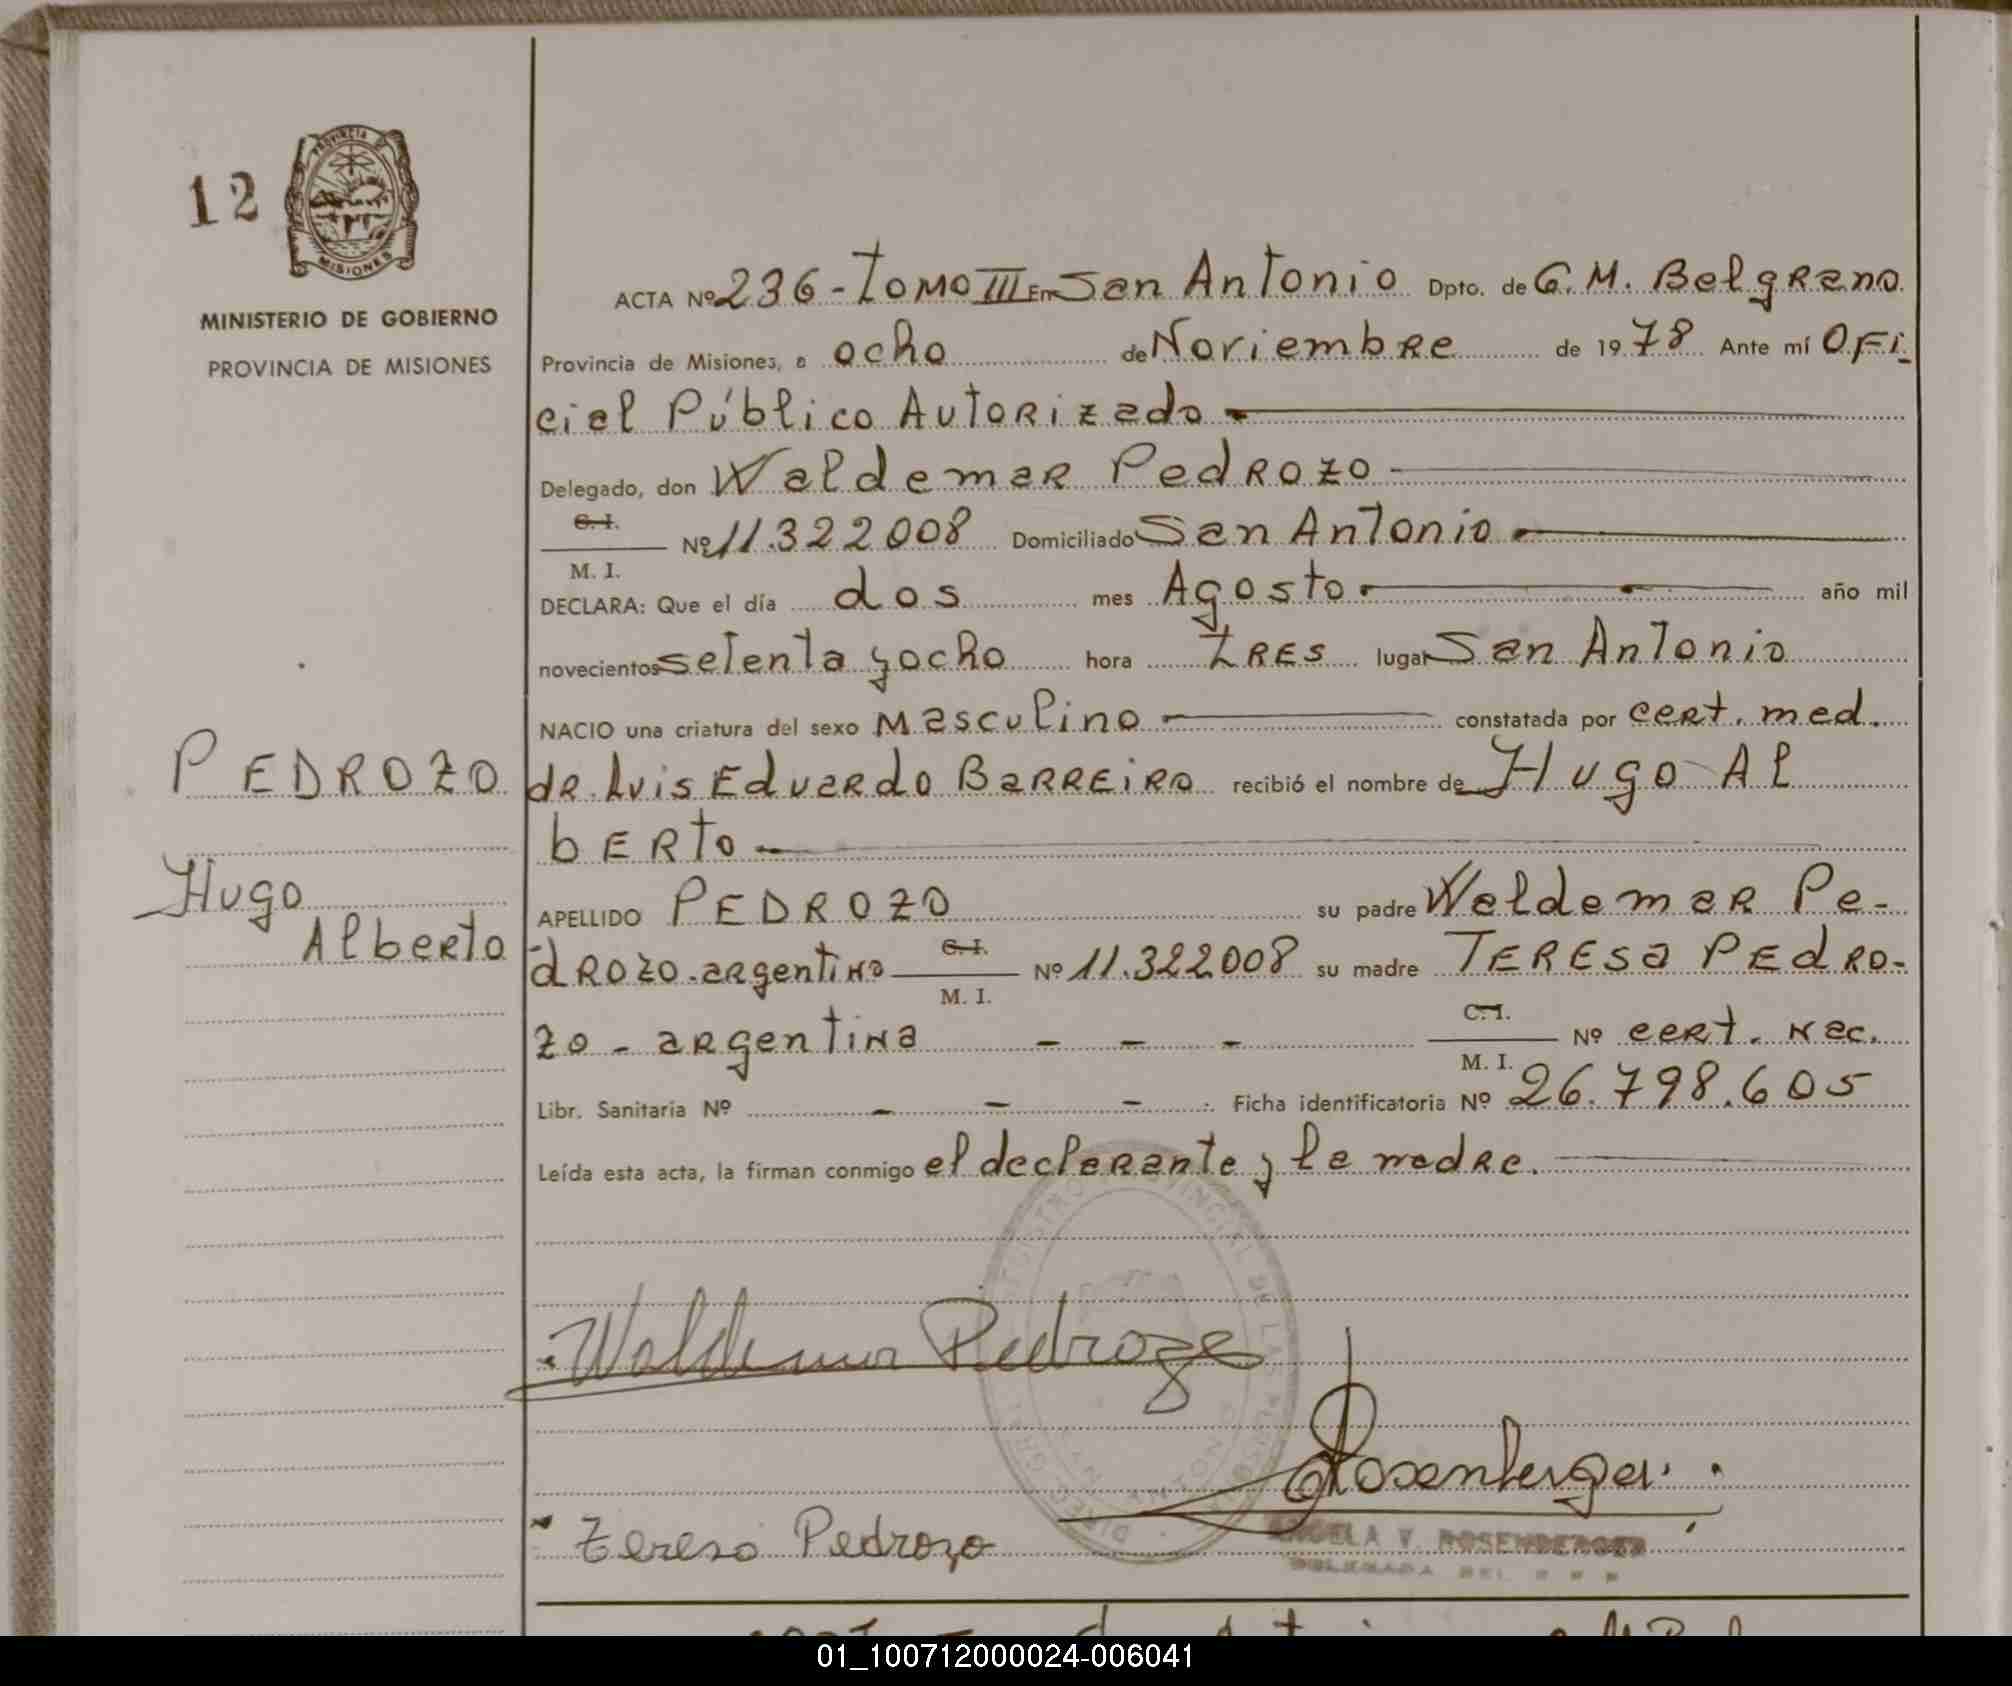 12
PROVINCIA DE
MISIONES
MINISTERIO DE GOBIERNO
PROVINCIA DE MISIONES
PEDROZO
Hugo
Alberto
ACTA Nº 236 - TOMO III En San Antonio Dpto. de G. M. Belgrano
Provincia de Misiones, a ocho de Noviembre de 1978 Ante mí OFi-
cial Público Autorizado
Delegado, don Waldemar Pedrozo
C. I.
Nº 11.322008 Domiciliado San Antonio
M. I.
DECLARA: Que el día dos mes Agosto año mil
novecientos setenta y ocho hora tres lugar San Antonio
NACIO una criatura del sexo masculino constatada por cert. med.
dr. Luis Eduardo Barreiro recibió el nombre de Hugo Al
berto
APELLIDO PEDROZO su padre Waldemar Pe-
drozo - argentino C. I. Nº 11.322008 su madre TERESA PEDRO-
M. I.
zo - argentina - - - C. I. Nº cert. nac.
M. I.
Libr. Sanitaria Nº - - - Ficha identificatoria Nº 26.798.605
Leída esta acta, la firman conmigo el declarante y la madre.
Waldemar Pedrozo
Rosenberger
Teresa Pedrozo
ANGELA V. ROSENBERGER
DELEGADA DEL
01_100712000024-006041